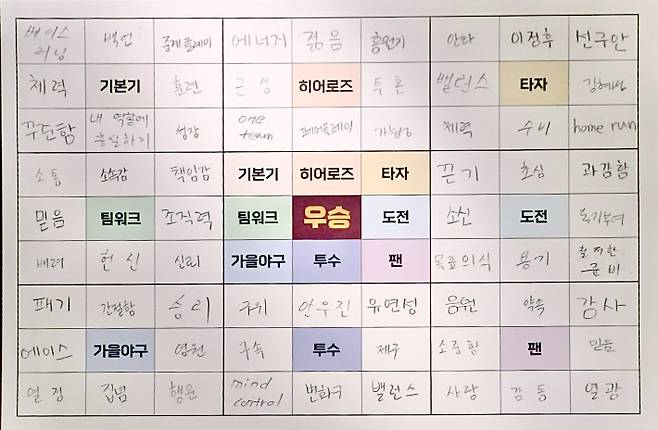 베이스 러닝 백업 중계플레이 에너지 젊음 홍원기 안타 이정후 선구안
체력 기본기 훈련 근성 히어로즈 투혼 밸런스 타자 김혜성
꾸준함 내 역할에 충실하기 성장 one team 페어플레이 가능성 체력 수비 home run
소통 소속감 책임감 기본기 히어로즈 타자 끈기 초심 과감함
믿음 팀워크 조직력 팀워크 우승 도전 소신 도전 동기부여
배려 헌신 신뢰 가을야구 투수 팬 목표의식 용기 철저한 준비
패기 간절함 승리 구위 안우진 유연성 응원 약속 감사
에이스 가을야구 염원 구속 투수 제구 소중함 팬 믿음
열정 집념 행운 mind control 변화구 밸런스 사랑 감동 열광